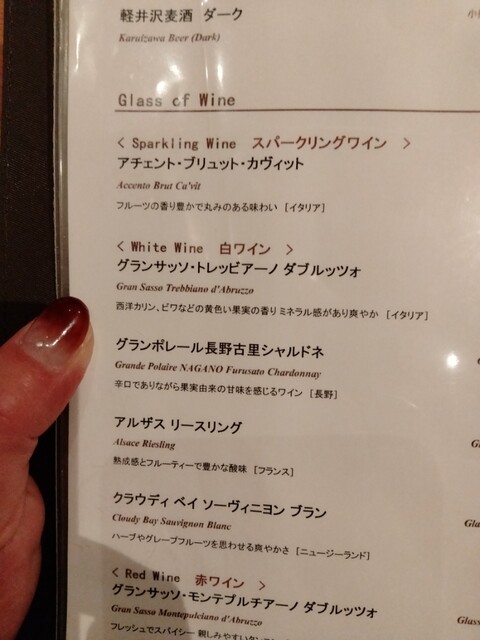 軽井沢麦酒 ダーク
Karuizawa Beer (Dark)
Glass of Wine
< Sparkling Wine スパークリングワイン >
アチェント・ブリュット・カヴィット
Accento Brut Ca'vit
フルーツの香り豊かで丸みのある味わい [イタリア]
< White Wine 白ワイン >
グランサッソ・トレッビアーノ ダブルッツォ
Gran Sasso Trebbiano d'Abruzzo
西洋カリン、ビワなどの黄色い果実の香り ミネラル感があり爽やか [イタリア]
グランポレール長野古里シャルドネ
Grande Polaire NAGANO Furusato Chardonnay
辛口でありながら果実由来の甘味を感じるワイン [長野]
アルザス リースリング
Alsace Riesling
熟成感とフルーティーで豊かな酸味 [フランス]
クラウディ ベイ ソーヴィニヨン ブラン
Cloudy Bay Sauvignon Blanc
ハーブやグレープフルーツを思わせる爽やかさ [ニュージーランド]
< Red Wine 赤ワイン >
グランサッソ・モンテプルチアーノ ダブルッツォ
Gran Sasso Montepulciano d'Abruzzo
フレッシュでスパイシー 親しみやすい